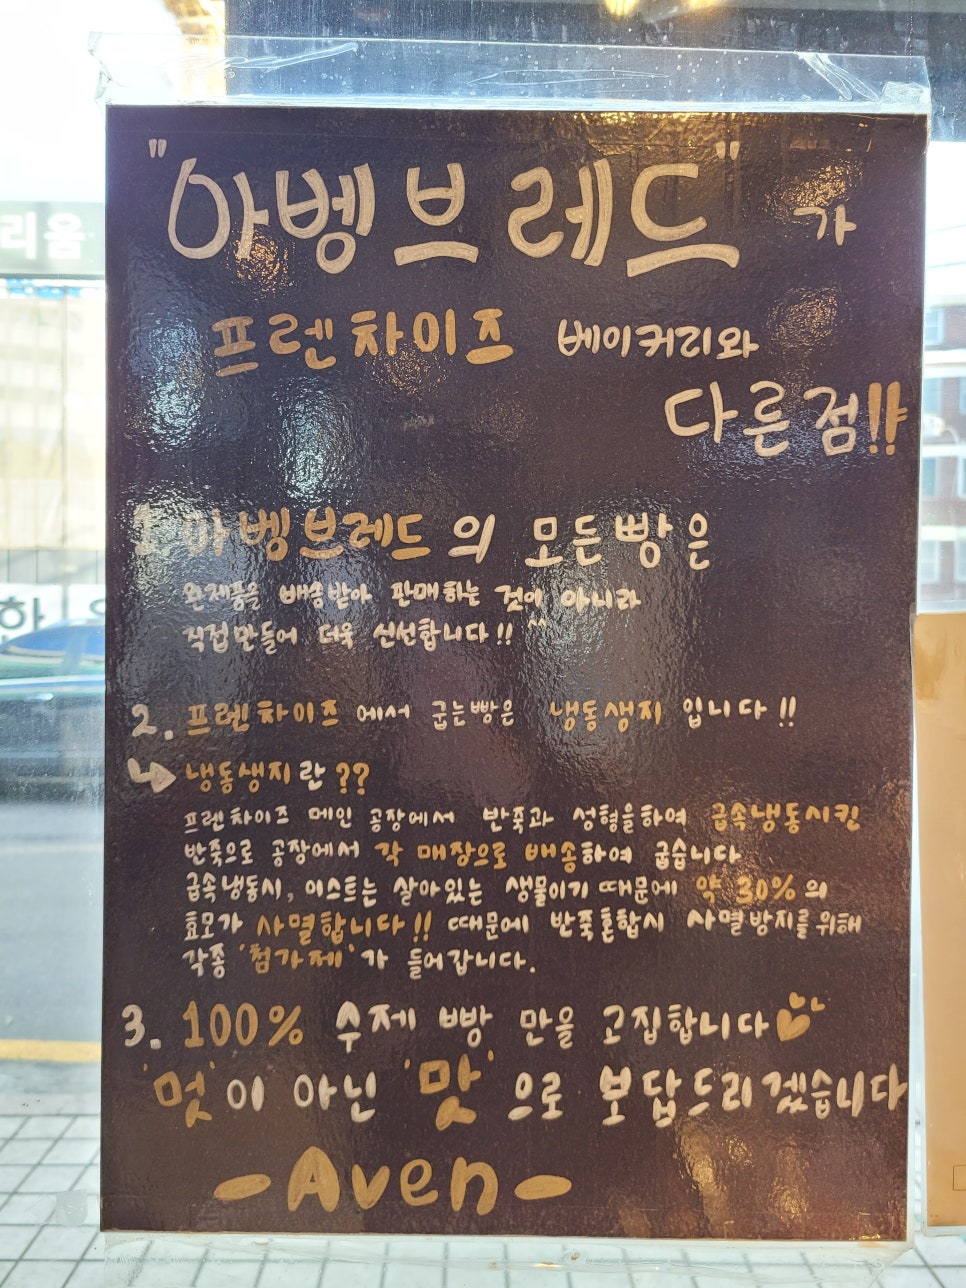 "아벵브레드"가
프렌차이즈 베이커리와
다른점!!
1. 아벵브레드의 모든빵은
완제품을 배송받아 판매하는 것이 아니라
직접만들어 더욱 신선합니다!!
2. 프렌차이즈에서 굽는빵은 냉동생지 입니다!!
↳ 냉동생지란??
프렌차이즈 메인 공장에서 반죽과 성형을하여 급속냉동시킨
반죽으로 공장에서 각 매장으로 배송하여 굽습니다
급속냉동시, 이스트는 살아있는 생물이기 때문에 약 30%의
효모가 사멸합니다!! 때문에 반죽혼합시 사멸방지를위해
각종 '첨가제'가 들어갑니다.
3. 100% 수제 빵 만을 고집합니다♡
'멋'이 아닌 '맛'으로 보답드리겠습니다
-Aven-
리움